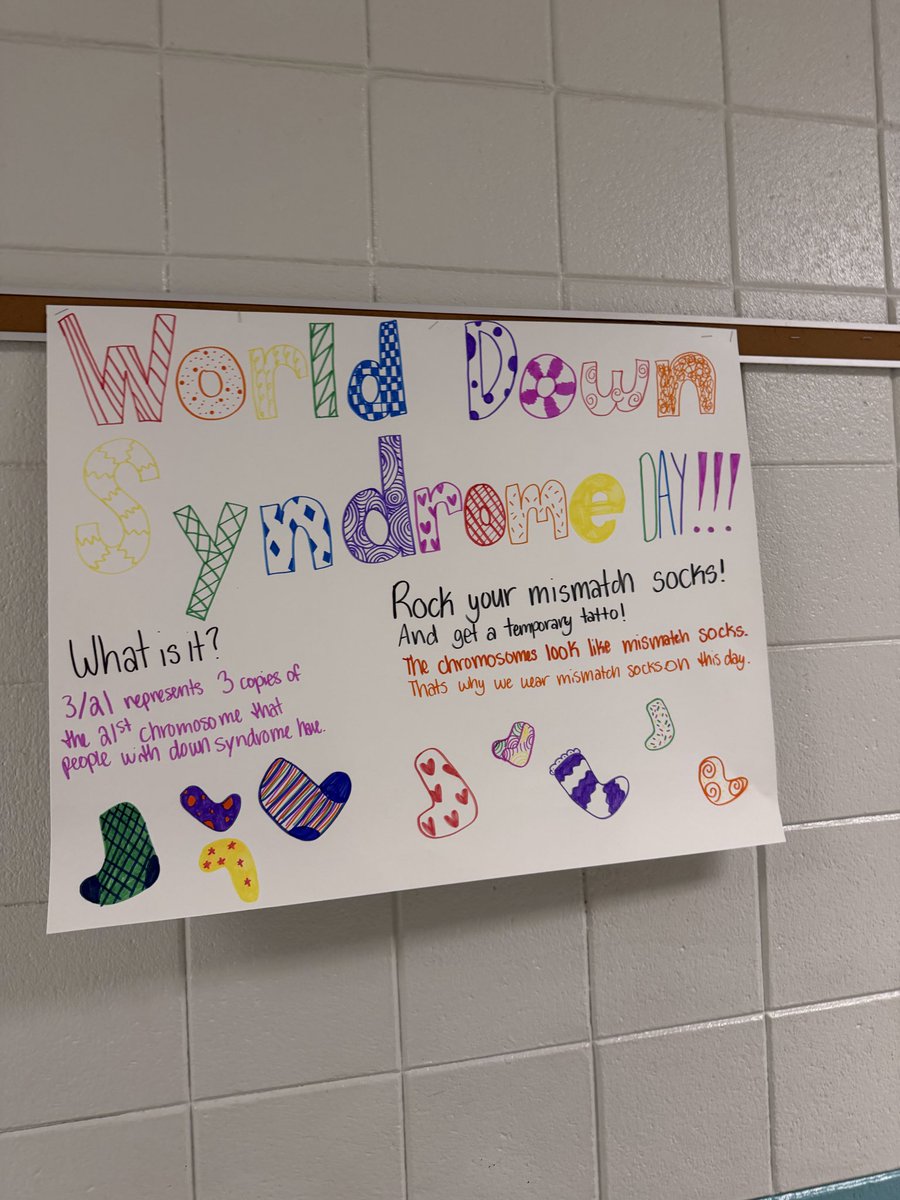 World Down
Syndrome DAY!!!
What is it?
3/21 represents 3 copies of
the 21st chromosome that
people with down syndrome have.
Rock your mismatch socks!
And get a temporary tatto!
The chromosomes look like mismatch socks.
Thats why we wear mismatch socks on this day.